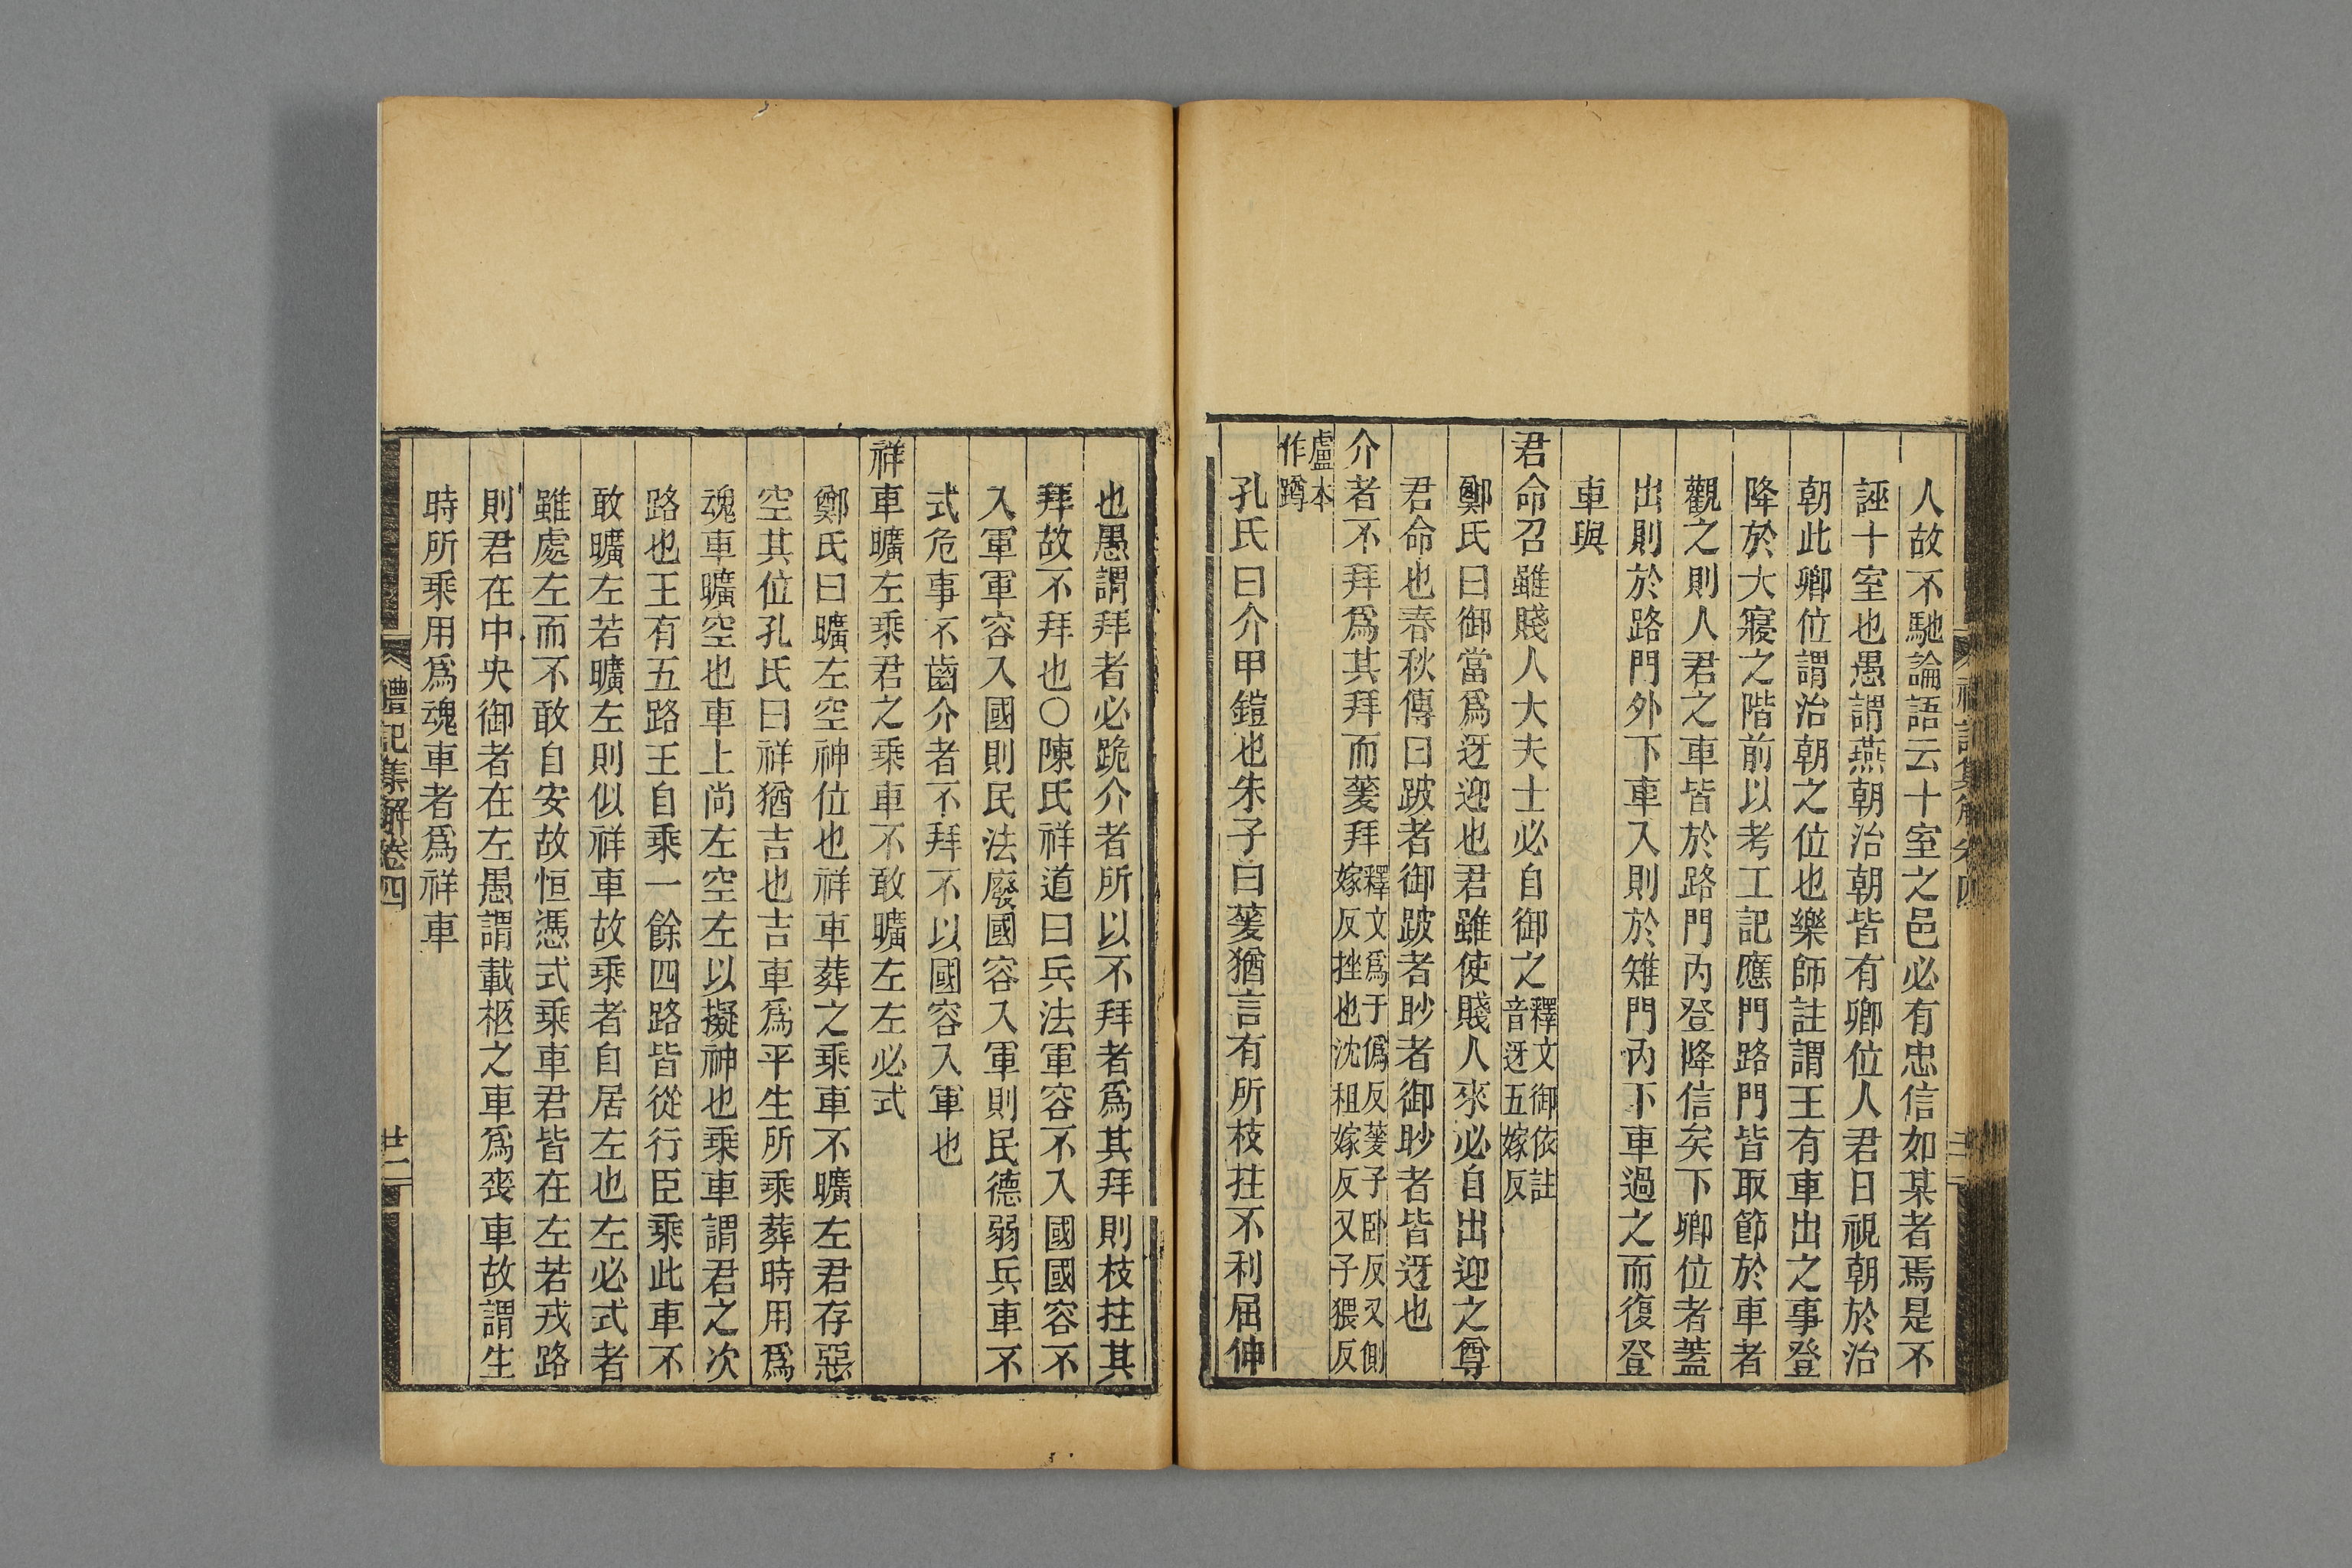 人故不馳論語云十室之邑必有忠信如某者焉是不
誣十室也愚謂燕朝治朝皆有卿位人君日視朝於治
朝此卿位謂治朝之位也樂師註謂王有車出之事登
降於大寢之階前以考工記應門路門皆取節於車者
觀之則人君之車皆於路門內登降信矣下卿位者蓋
出則於路門外下車入則於雉門內下車過之而復登
車與
君命召雖賤人大夫士必自御之釋文御依註音迓五嫁反
鄭氏曰御當爲迓迎也君雖使賤人來必自出迎之尊
君命也春秋傳曰跛者御跛者眇者御眇者皆迓也
介者不拜爲其拜而蓌拜釋文爲于僞反蓌子卧反又側嫁反挫也沈租嫁反又子猥反
盧本作蹲
孔氏曰介甲鎧也朱子曰蓌猶言有所枝拄不利屈伸
也愚謂拜者必跪介者所以不拜者爲其拜則枝拄其
拜故不拜也○陳氏祥道曰兵法軍容不入國國容不
入軍軍容入國則民法廢國容入軍則民德弱兵車不
式危事不齒介者不拜不以國容入軍也
祥車曠左乘君之乘車不敢曠左左必式
鄭氏曰曠左空神位也祥車葬之乘車不曠左君存惡
空其位孔氏曰祥猶吉也吉車爲平生所乘葬時用爲
魂車曠空也車上尚左空左以擬神也乘車謂君之次
路也王有五路王自乘一餘四路皆從行臣乘此車不
敢曠左若曠左則似祥車故乘者自居左也左必式者
雖處左而不敢自安故恒憑式乘車君皆在左若戎路
則君在中央御者在左愚謂載柩之車爲喪車故謂生
時所乘用爲魂車者爲祥車
禮記集解卷四
廿二